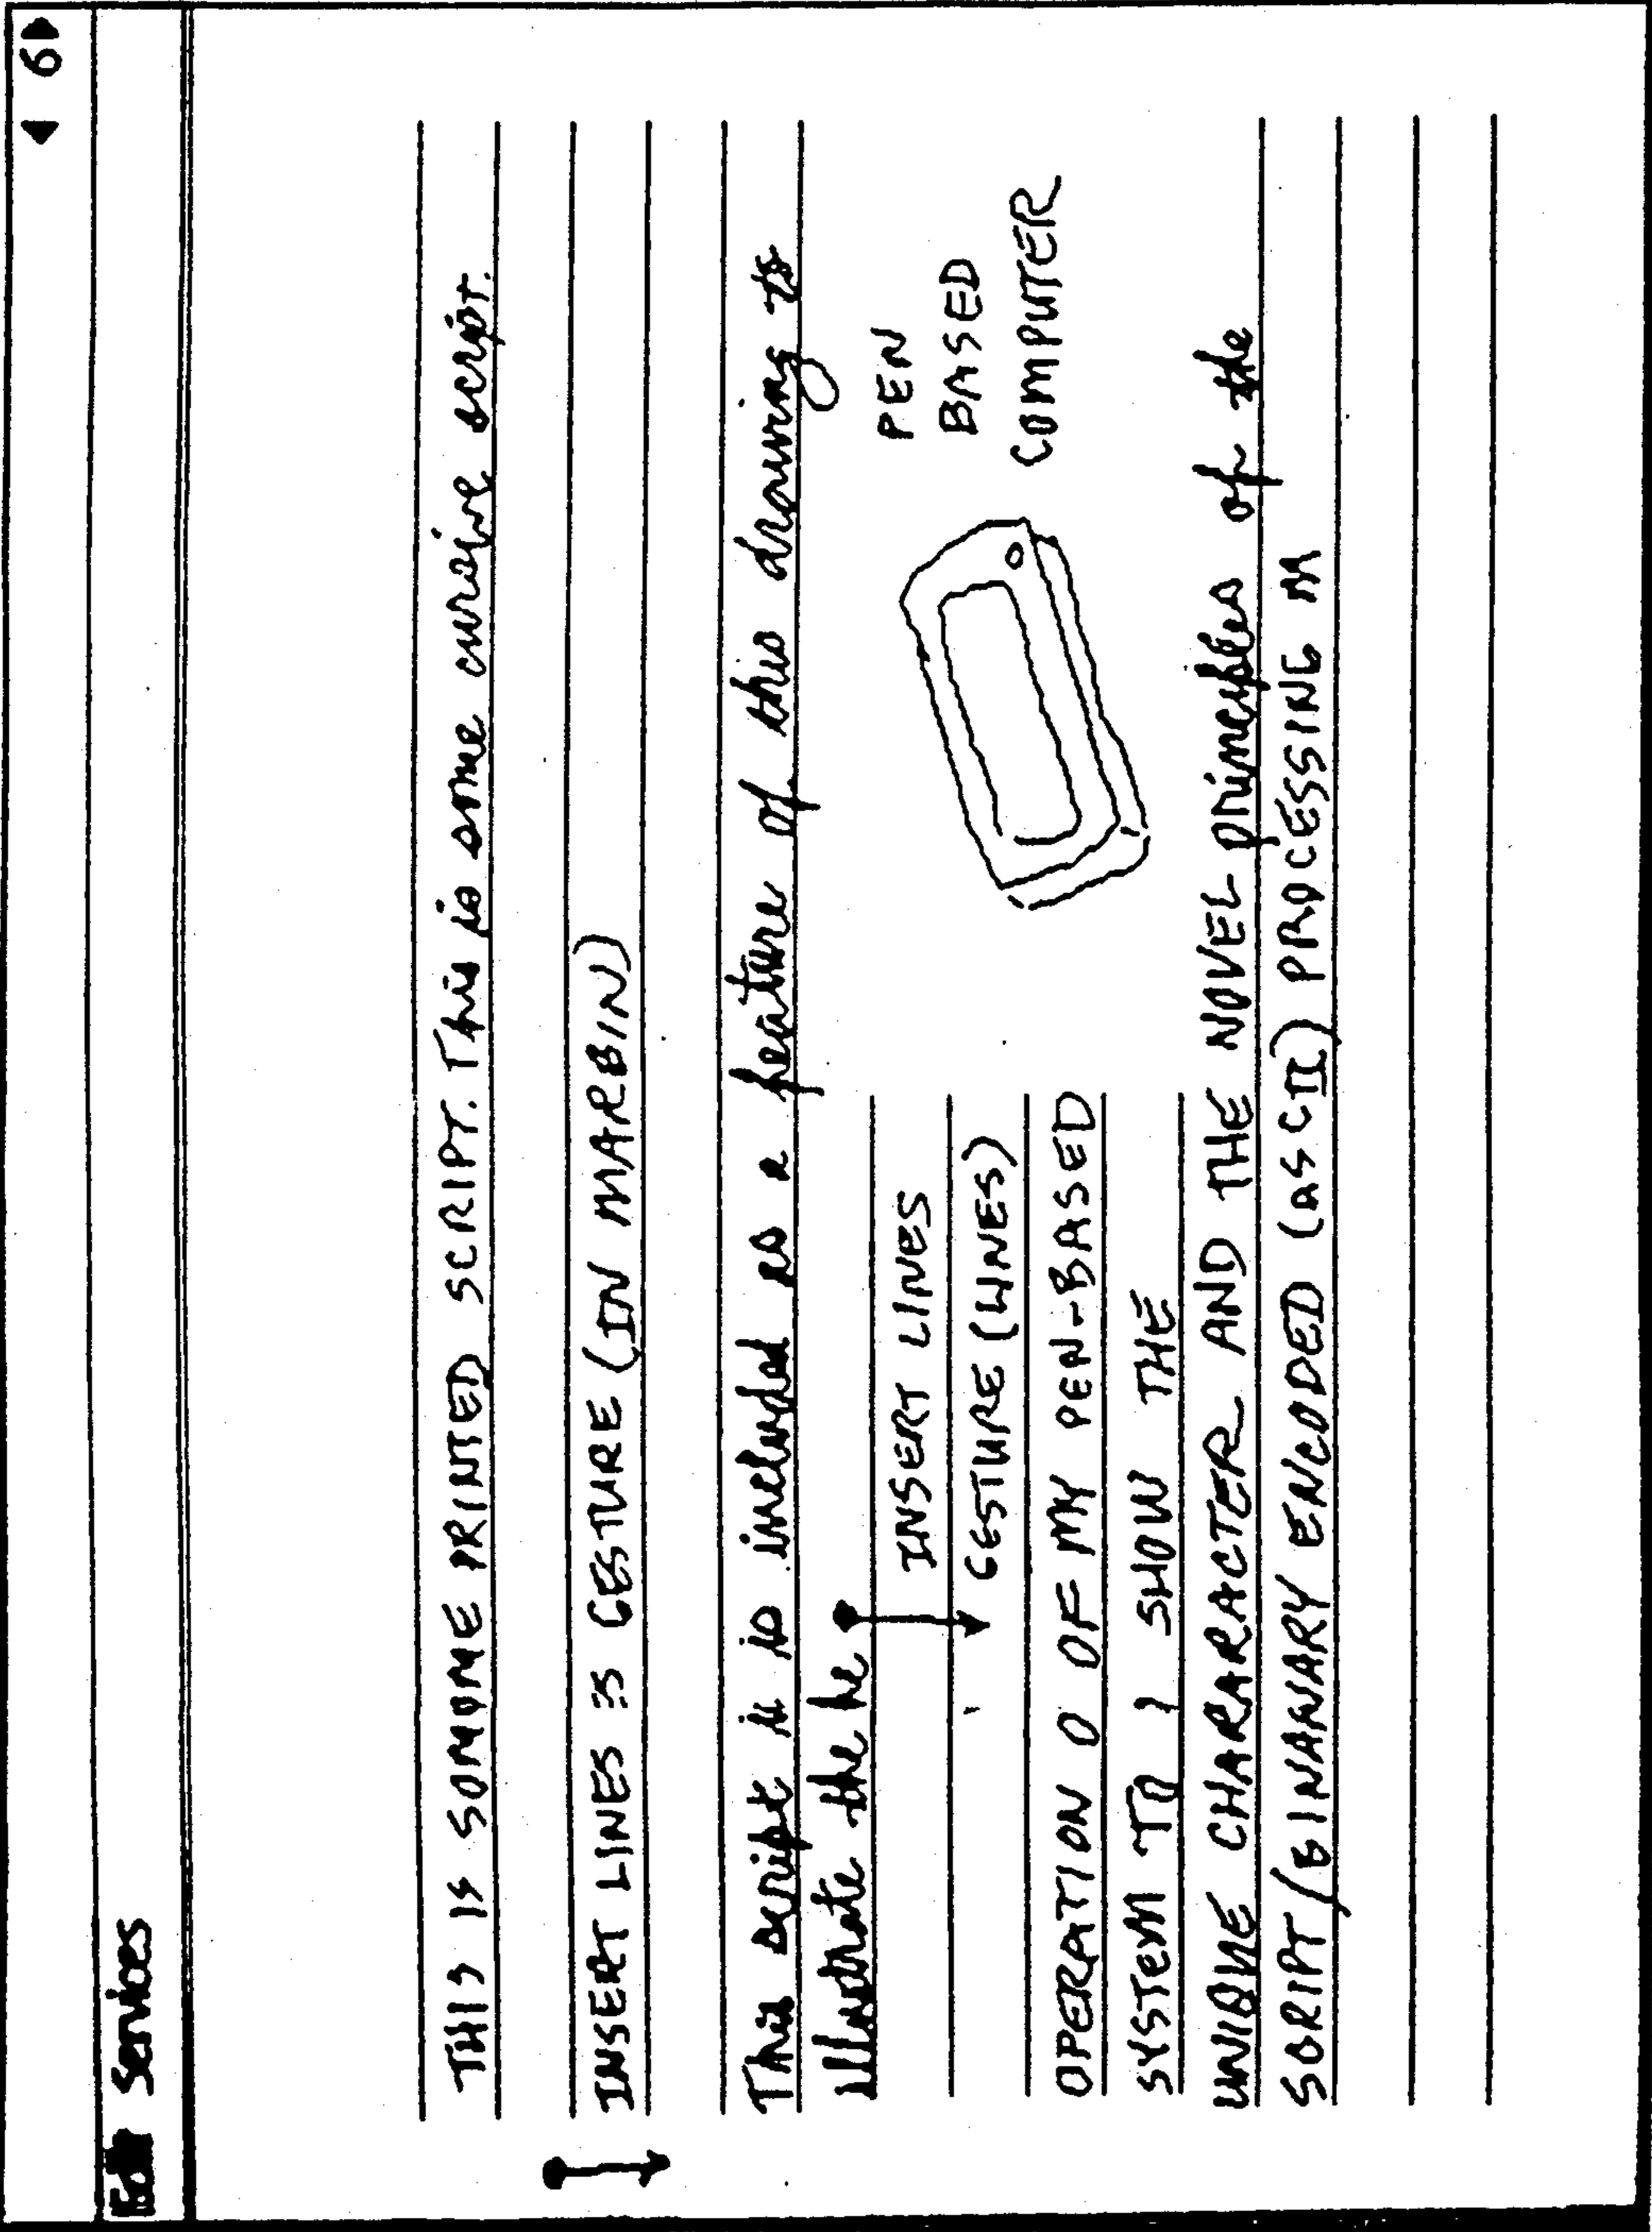 ◀ 6 ▶
Edit Services
THIS IS SOMOME PRINTED SCRIPT. This is some cursive script.
INSERT LINES IS GESTURE (IN MARBIN)
This script it is included as a feature of this drawing to
illustrate the he
INSERT LINES
GESTURE (LINES)
PEN
BASED
COMPUTER
OPERATION O OF MY PEN-BASED
SYSTEM TO I SHOW THE
UNIQUE CHARARACTER AND THE NOVEL principles of the
SCRIPT/BINANARY ENCODED (ASCII) PROCESSING M